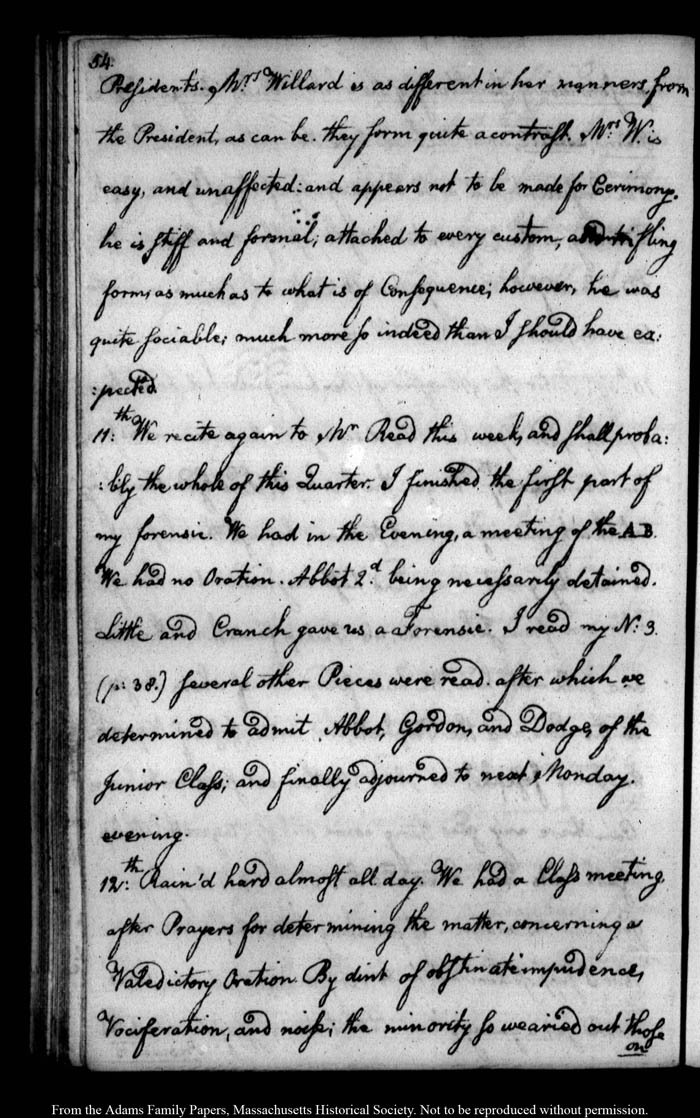 54.
Presidents. Mrs. Willard is as different in her manners, from
the President, as can be. they form quite a contrast. Mrs. W. is
easy, and unaffected: and appears not to be made for Cerimony.
he is stiff and formal; attached to every custom, and trifling
form, as much as to what is of Consequence; however, he was
quite sociable; much more so indeed than I should have ex:
:pected
11:th We recite again to Mr Read this week, and shall proba:
:bly the whole of this Quarter. I finished the first part of
my forensic. We had in the Evening, a meeting of the A B.
We had no Oration. Abbot 2d. being necessarily detained.
Little and Cranch gave us a Forensic. I read my N: 3.
(p: 38.) several other Pieces were read. after which we
determined to admit, Abbot, Gordon, and Dodge, of the
Junior Class; and finally adjourned to next Monday.
evening.
12:th Rain'd hard almost all day. We had a Class meeting
after Prayers for determining the matter, concerning a
Valedictory Oration By dint of obstinate impudence,
Vociferation, and noise; the minority so wearied out those
on
From the Adams Family Papers, Massachusetts Historical Society. Not to be reproduced without permission.